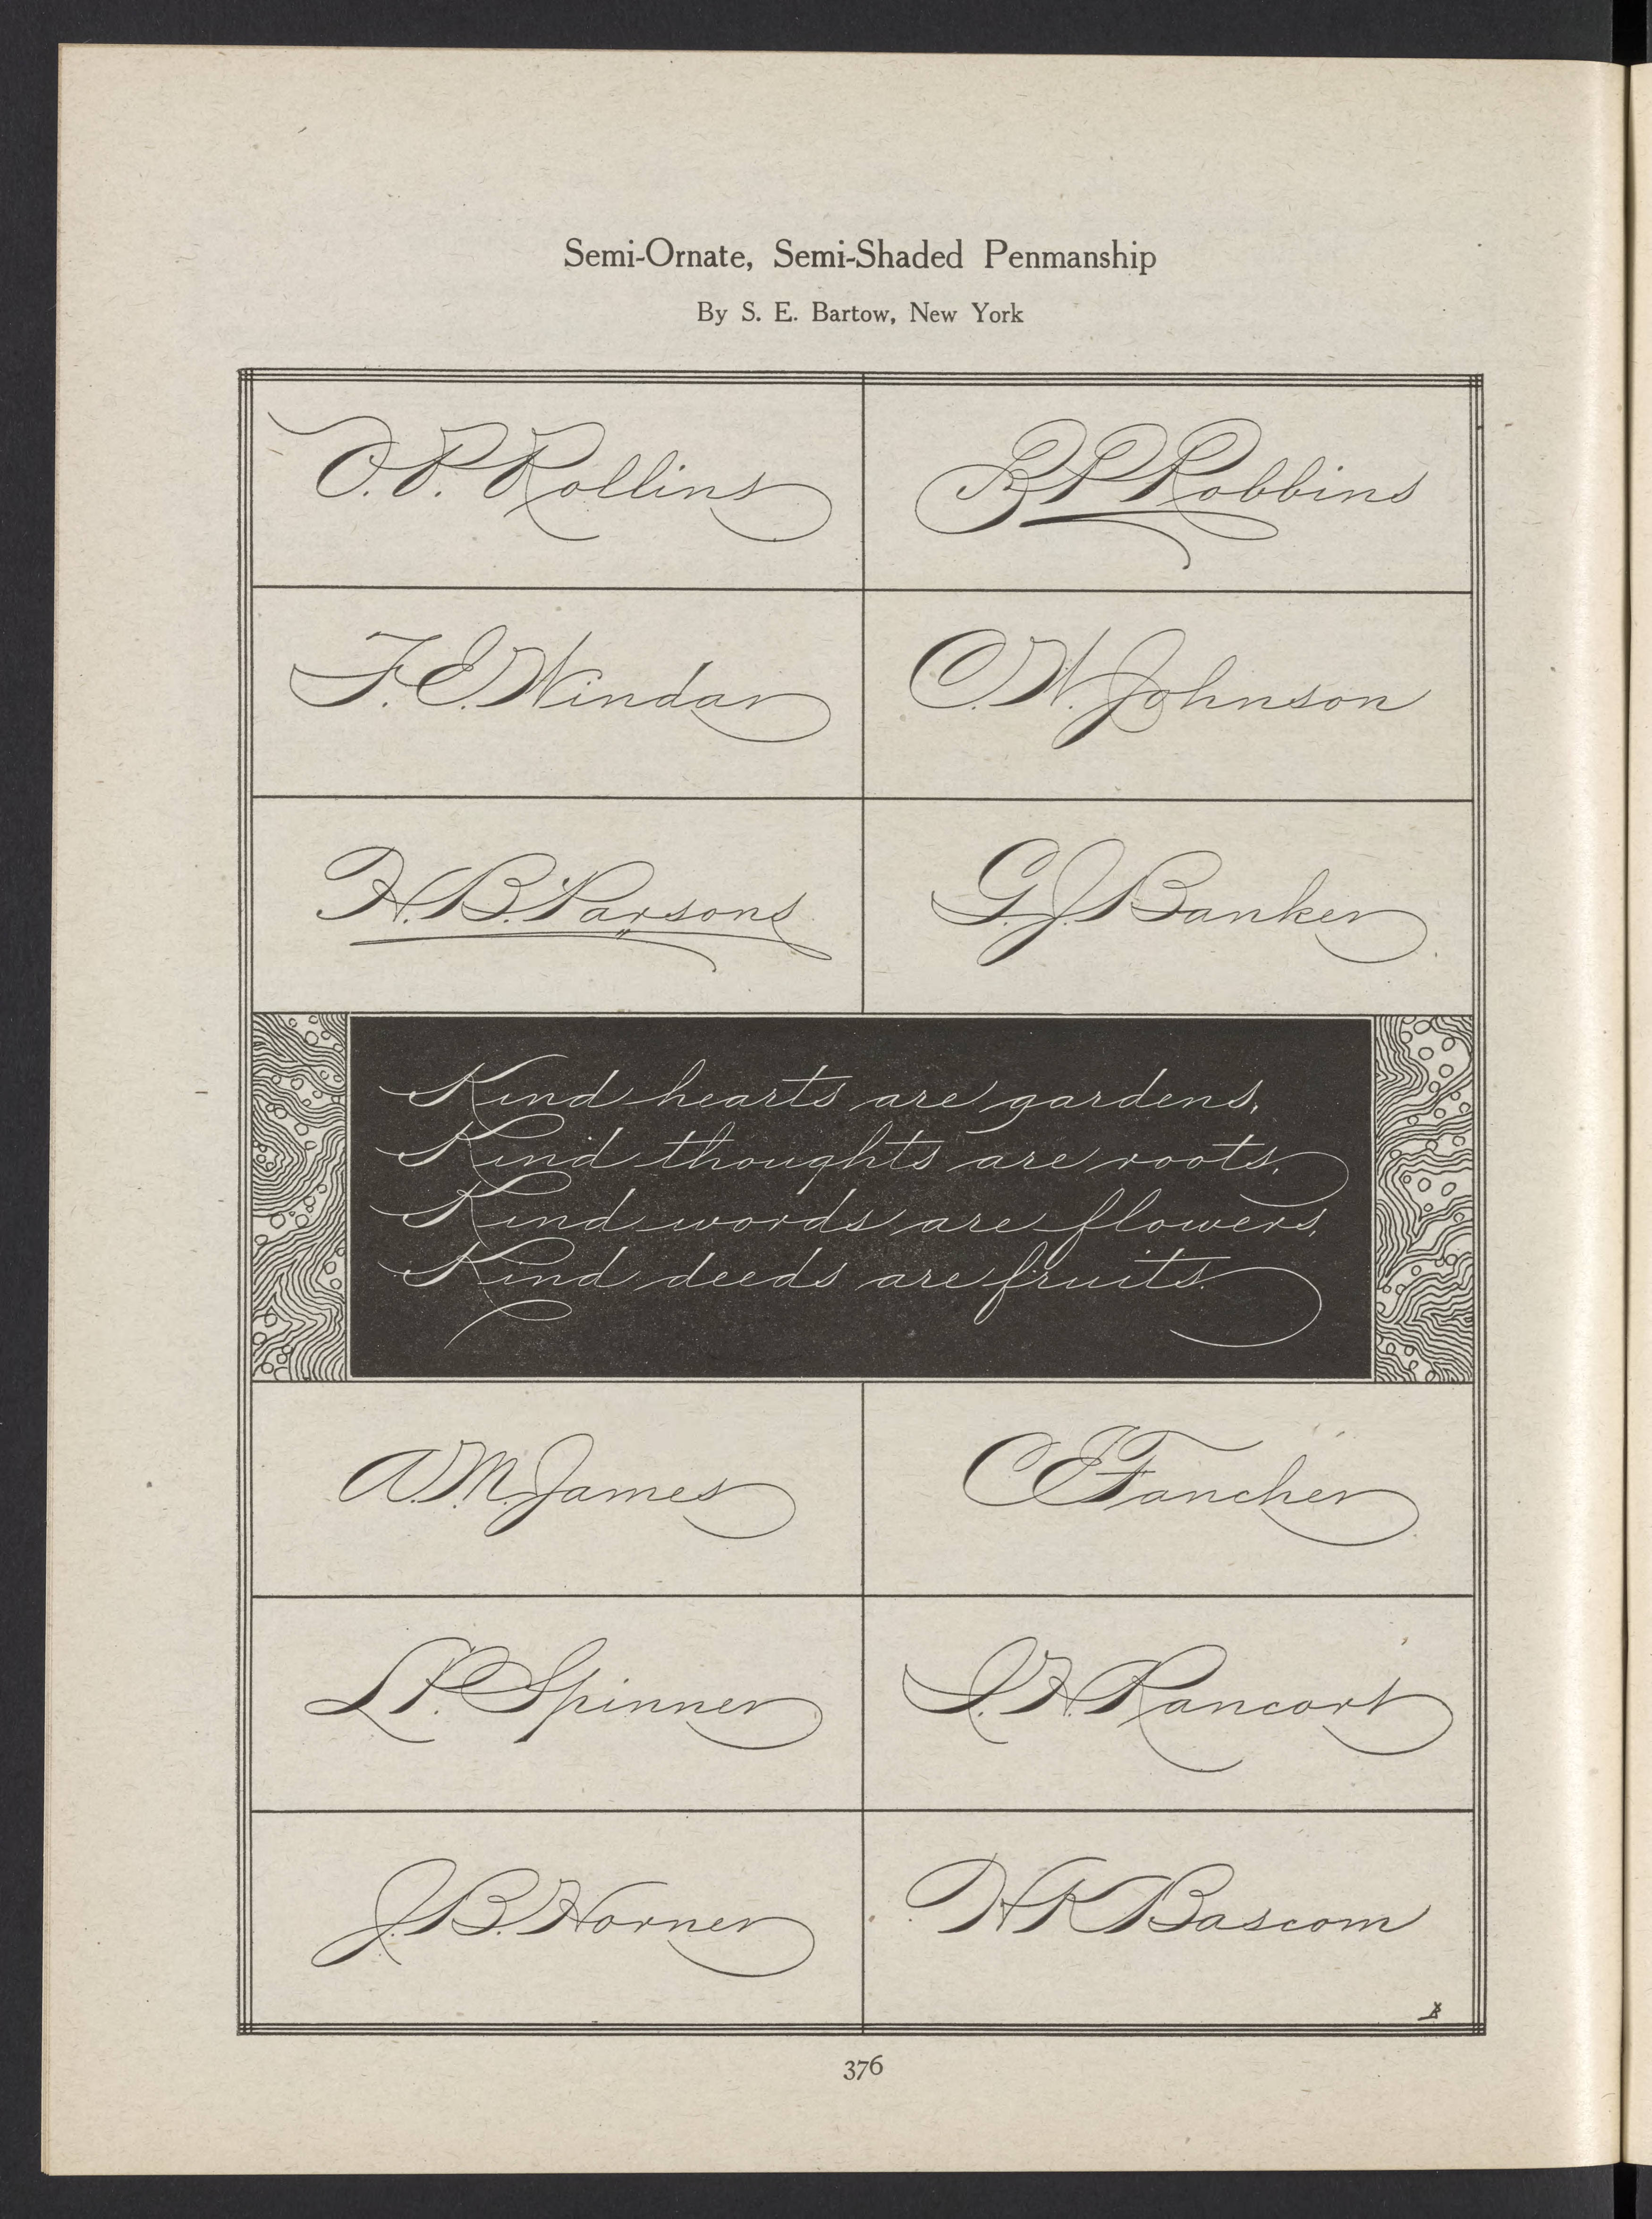 Semi-Ornate, Semi-Shaded Penmanship
By S. E. Bartow, New York
O. P. Rollins
B P Robbins
F. E. Windar
C. W. Johnson
H. B. Parsons
G. J. Banker
Kind hearts are gardens,
Kind thoughts are roots,
Kind words are flowers,
Kind deeds are fruits.
A. M. James
C E Fancher
L P. Spinner
I. H. Rancort
J. B. Horner
H K Bascom
376